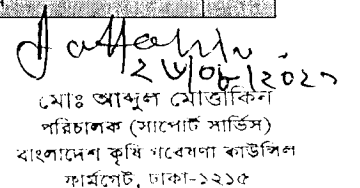 ২৬/০৮/২০২১
মোঃ আব্দুল মোত্তাকিন
পরিচালক (সাপোর্ট সার্ভিস)
বাংলাদেশ কৃষি গবেষণা কাউন্সিল
ফার্মগেট, ঢাকা-১২১৫